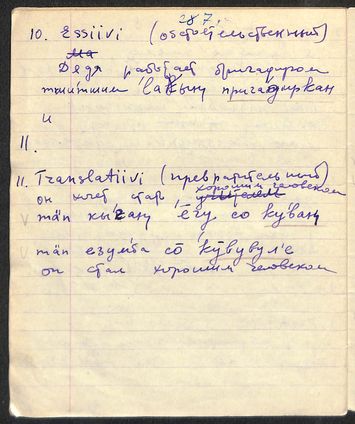 287.
10. Essiivi (обстоятельственный)
Дядя работает бригадиром
пригадиркан
и
11.
11. Translatiivi (превратительный)
хорошим человеком
он хочет стать учителем
тäп кыгаң ēгу со кӯваң
тäп езумба сō кӯвувуле
он стал хорошим человеком